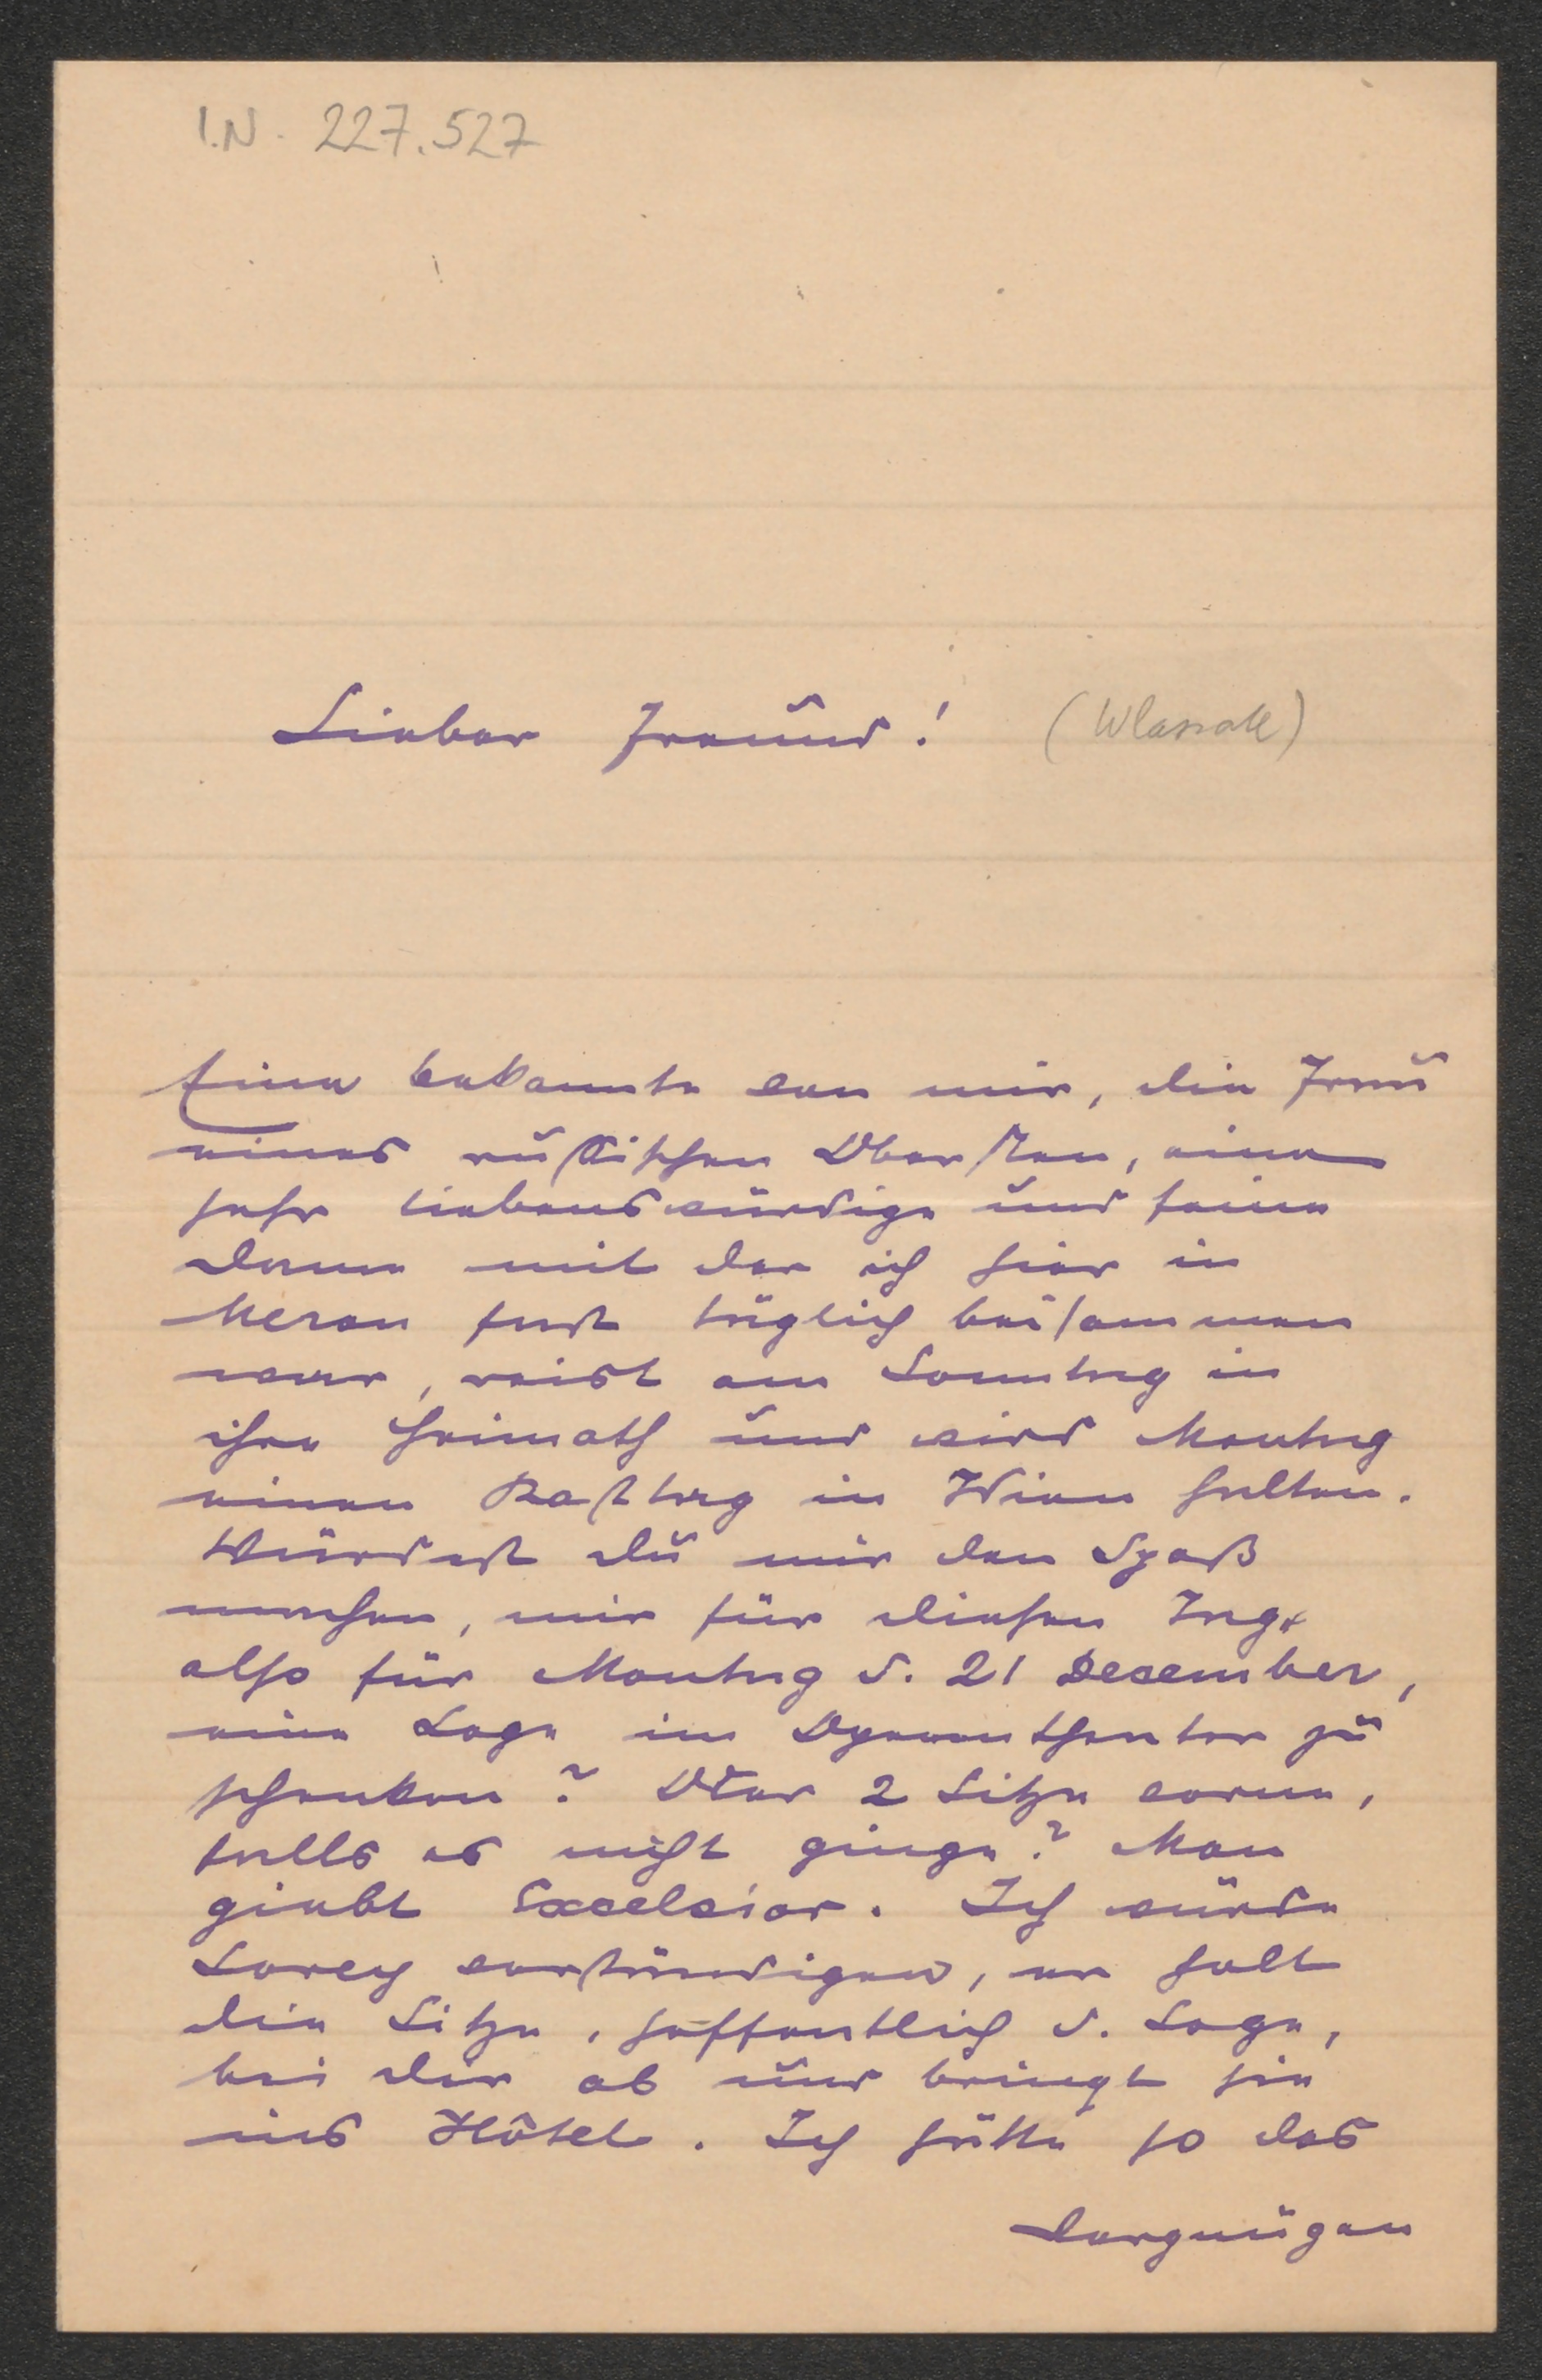 I.N. 227.527
Lieber Freund! (Wlassak)
Eine bekannte von mir, die Frau
eines russischen Obersten, eine
sehr liebenswürdige und feine
Dame mit der ich hier in
Meran fast täglich beisammen
war, reist am Sonntag in
ihre Heimath und wird Montag
einen Rasttag in Wien halten.
Würdest Du mir den Spaß
machen, mir für diesen Tag,
also für Montag d. 21 Dezember,
eine Loge im Operntheater zu
schenken? Oder 2 Sitze vorne,
falls es nicht ginge? Man
giebt Excelsior. Ich würde
Lorey verständigen, er holt
die Sitze, hoffentlich d. Loge,
bei Dir ab und bringt sie
ins Hôtel. Ich hätte so das
Vergnügen